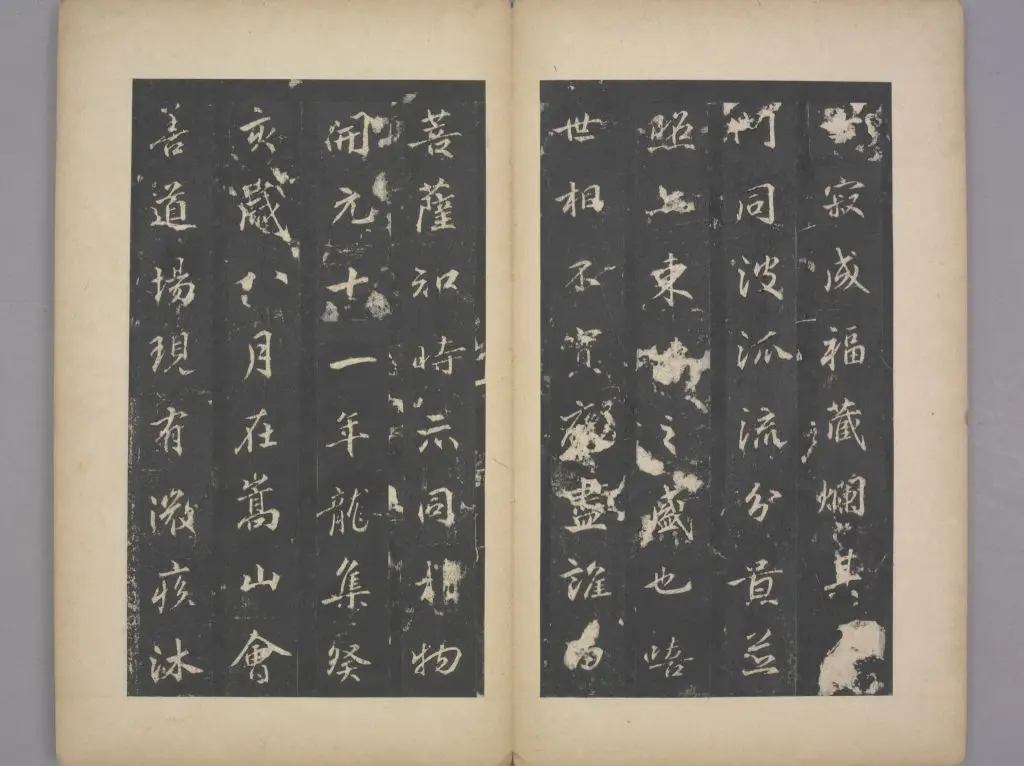 寂成福藏爛其
門同波泒流分並
照上東之盛也嘻
世相不實盡誰留
菩薩知時示同相物
開元十一年龍集癸
亥歲八月在嵩山會
善道場現有微疾沐